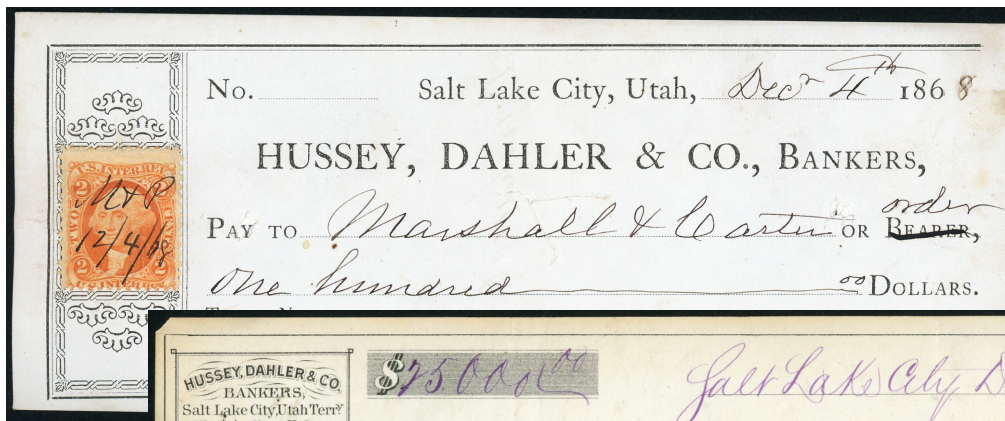 No. Salt Lake City, Utah, Decr 4th 1868
HUSSEY, DAHLER & CO., BANKERS,
PAY TO Marshall & Carter OR BEARER, order
One hundred 00 DOLLARS.
U.S. INTER. REV.
2 2
TWO CENTS
M & P
12/4/68
2 2
HUSSEY, DAHLER & CO.
BANKERS,
Salt Lake City, Utah Terry
$25000 00
Salt Lake City D